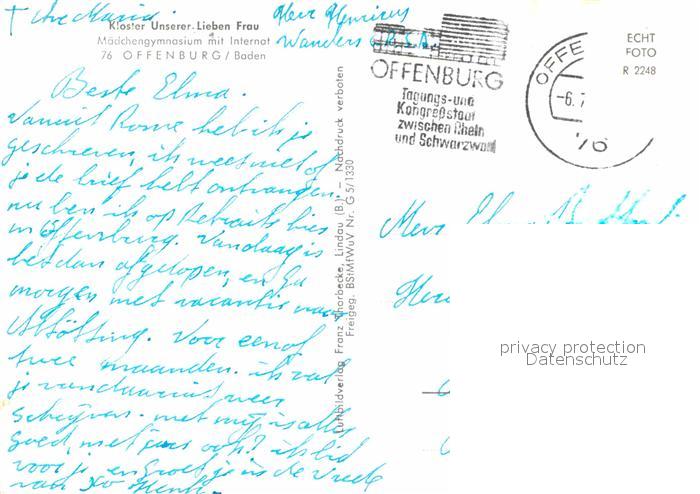 † Ave Maria.
Kloster Unserer Lieben Frau
Mädchengymnasium mit Internat
76 OFFENBURG / Baden
Herr Henricus
Wanders
OFFENBURG
Tagungs- und
Kongreßstadt
zwischen Rhein
und Schwarzwald
OFFE
-6.7
76
ECHT
FOTO
R 2248
Beste Elma.
Vanuit Rome heb ik je
geschreven, ik weet niet of
je de brief hebt ontvangen.
nu ben ik op Retraite hier
in Offenburg. Vandaag is
het dan afgelopen, en ga
morgen met vacantie naar
Altötting. Voor een of
twee maanden. ik zal
je vandaaruit weer
schrijven. met mij is alles
goed, met jou ook? ik bid
voor je, en groet je in de Vrede
van Xo Henk.
Luftbildverlag Franz Thorbecke, Lindau (B.) — Nachdruck verboten
Freigeg. BStMfWuV Nr. G 5/1330
Mevr
Heer
privacy protection
Datenschutz